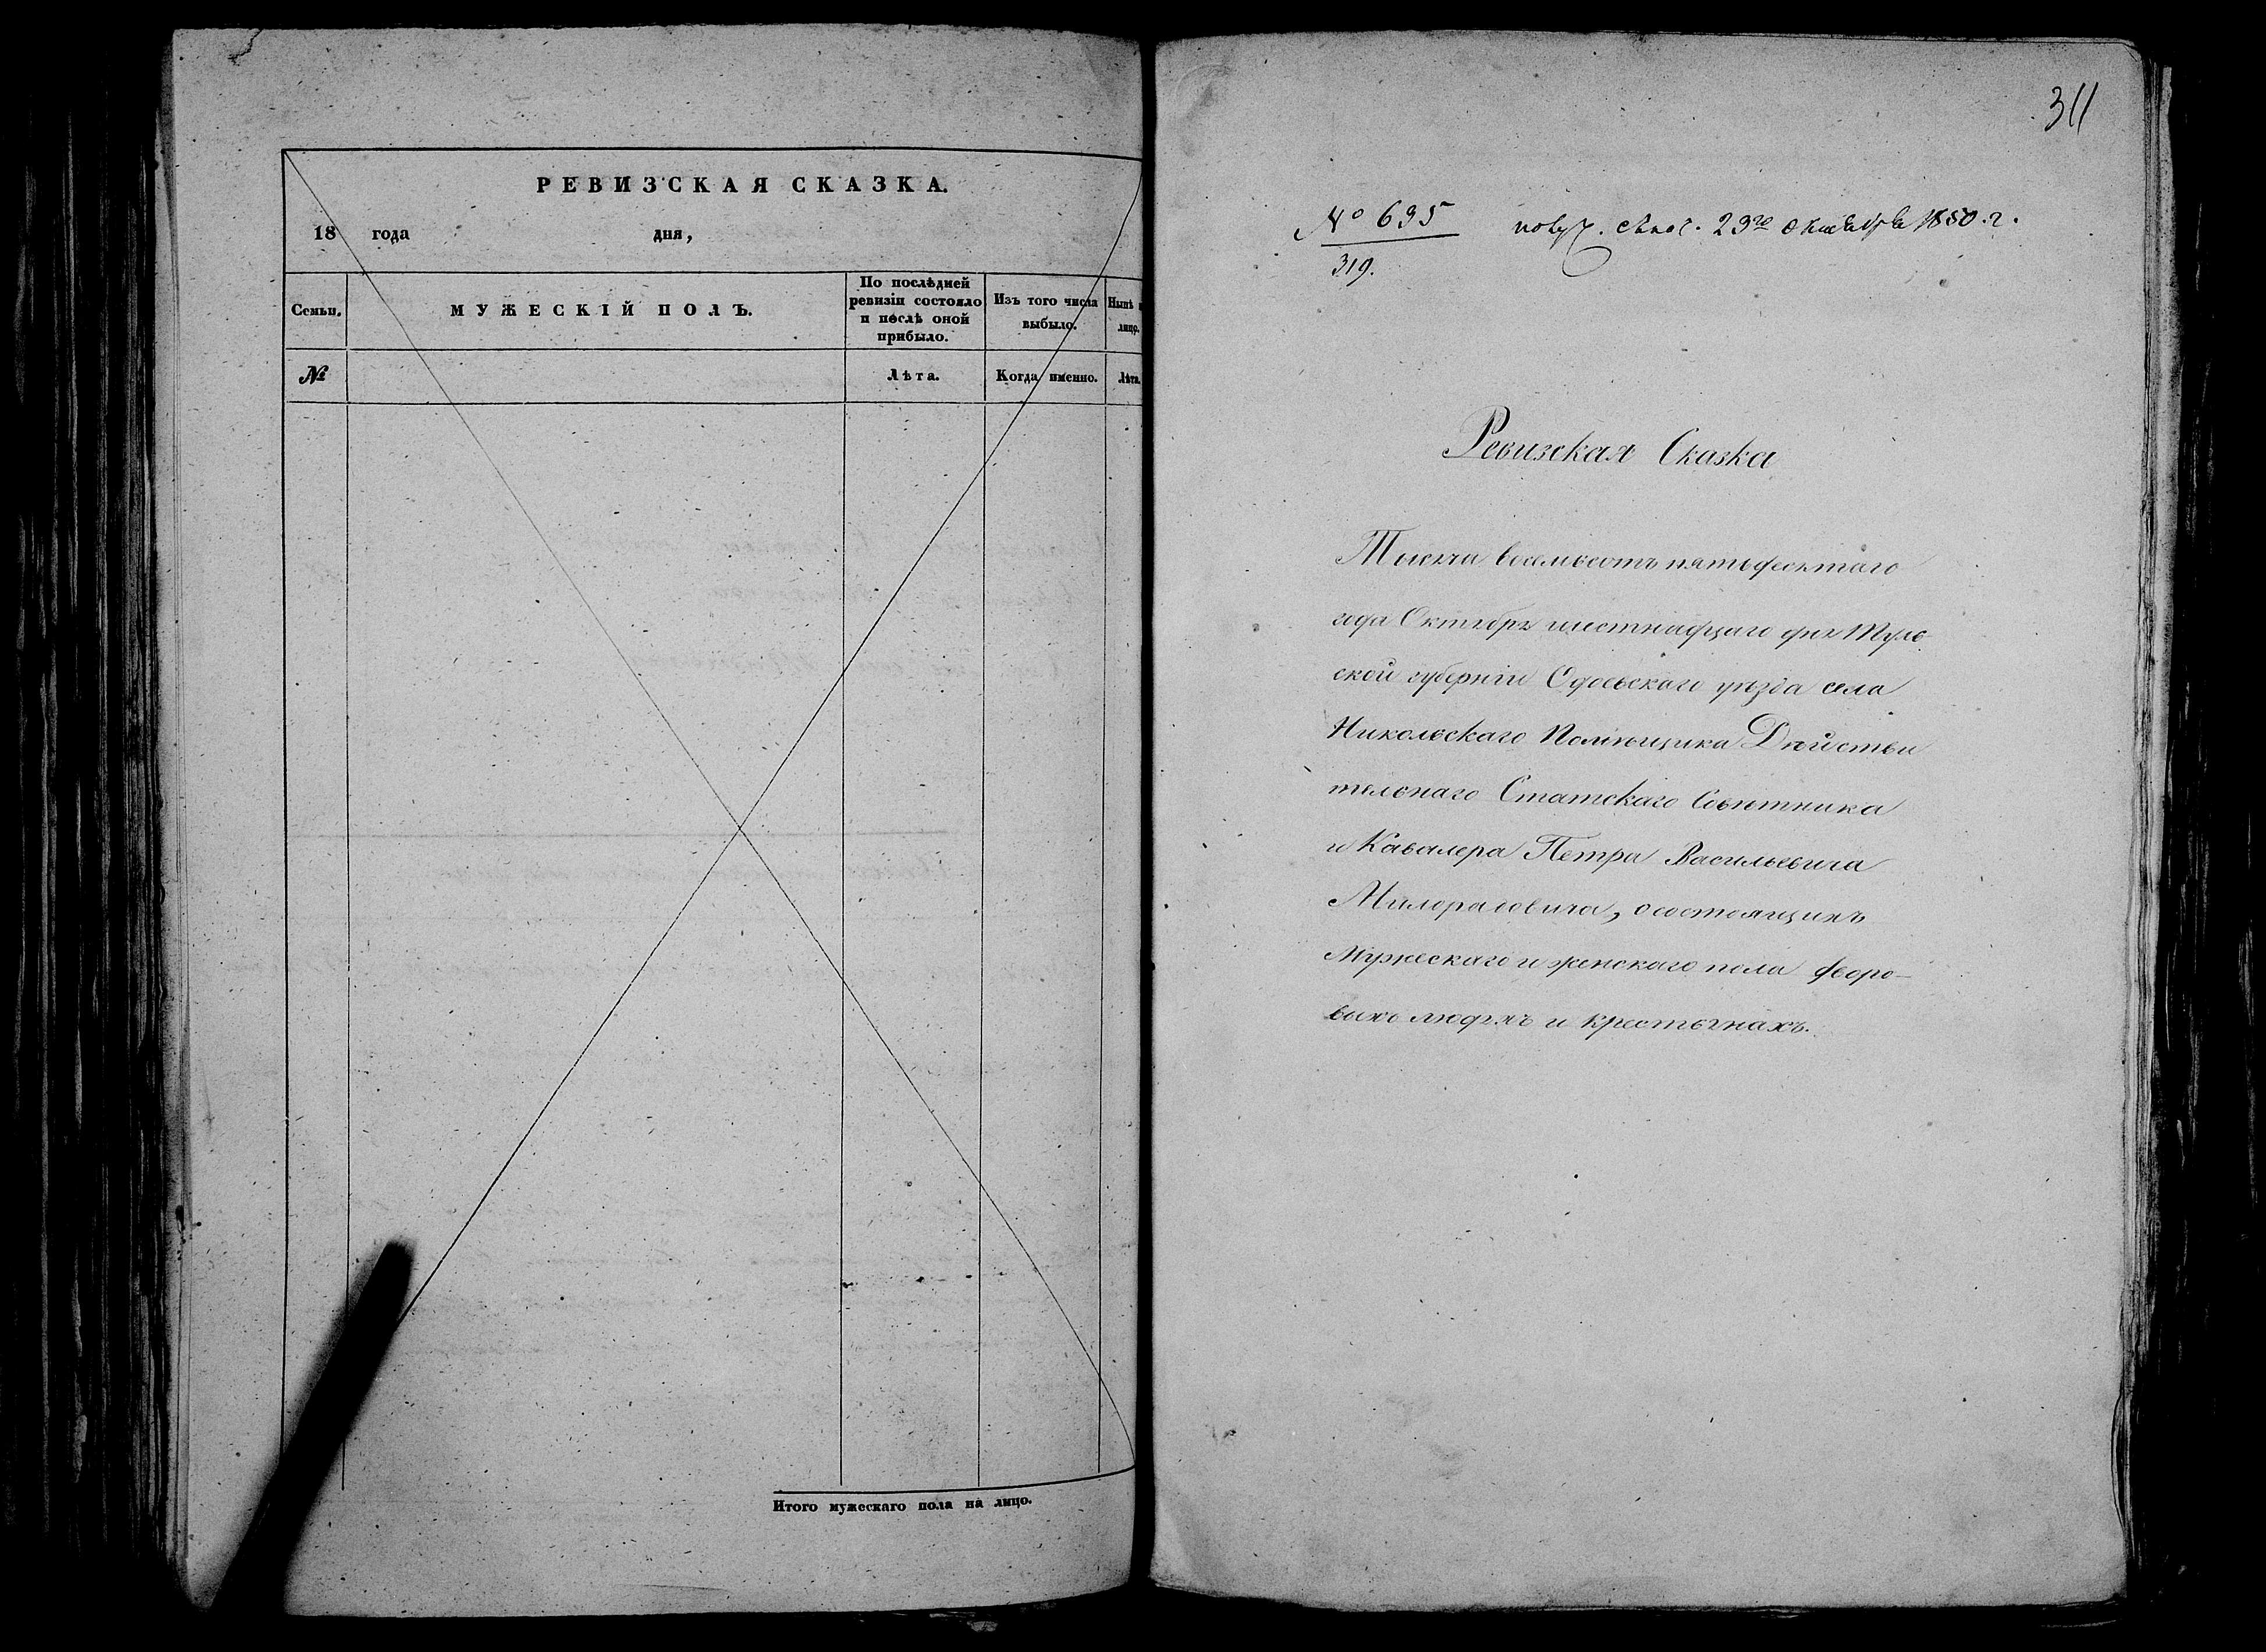 РЕВИЗСКАЯ СКАЗКА.
18 года дня,
Семьи.
МУЖЕСКІЙ ПОЛЪ.
По послѣдней
ревизіи состояло
и послѣ оной
прибыло.
Изъ того числа
выбыло.
Нынѣ н
лицо.
№
Лѣта.
Когда именно.
Лѣта.
Итого мужескаго пола на лицо.
311
№ 695
319.
23го Октября 1850.г.
Ревизская Сказка
Тысяча восемьсотъ пятьдесятаго
года Октября шестнадцаго дня Туль-
ской губерніи Одоевскаго уѣзда села
Никольскаго Помѣщика Дѣйстви
тельнаго Статскаго Совѣтника
и Кавалера Петра Васильевича
Милорадовича, о состоящихъ
Мужескаго и женскаго пола дворо-
выхъ людяхъ и крестьянахъ.